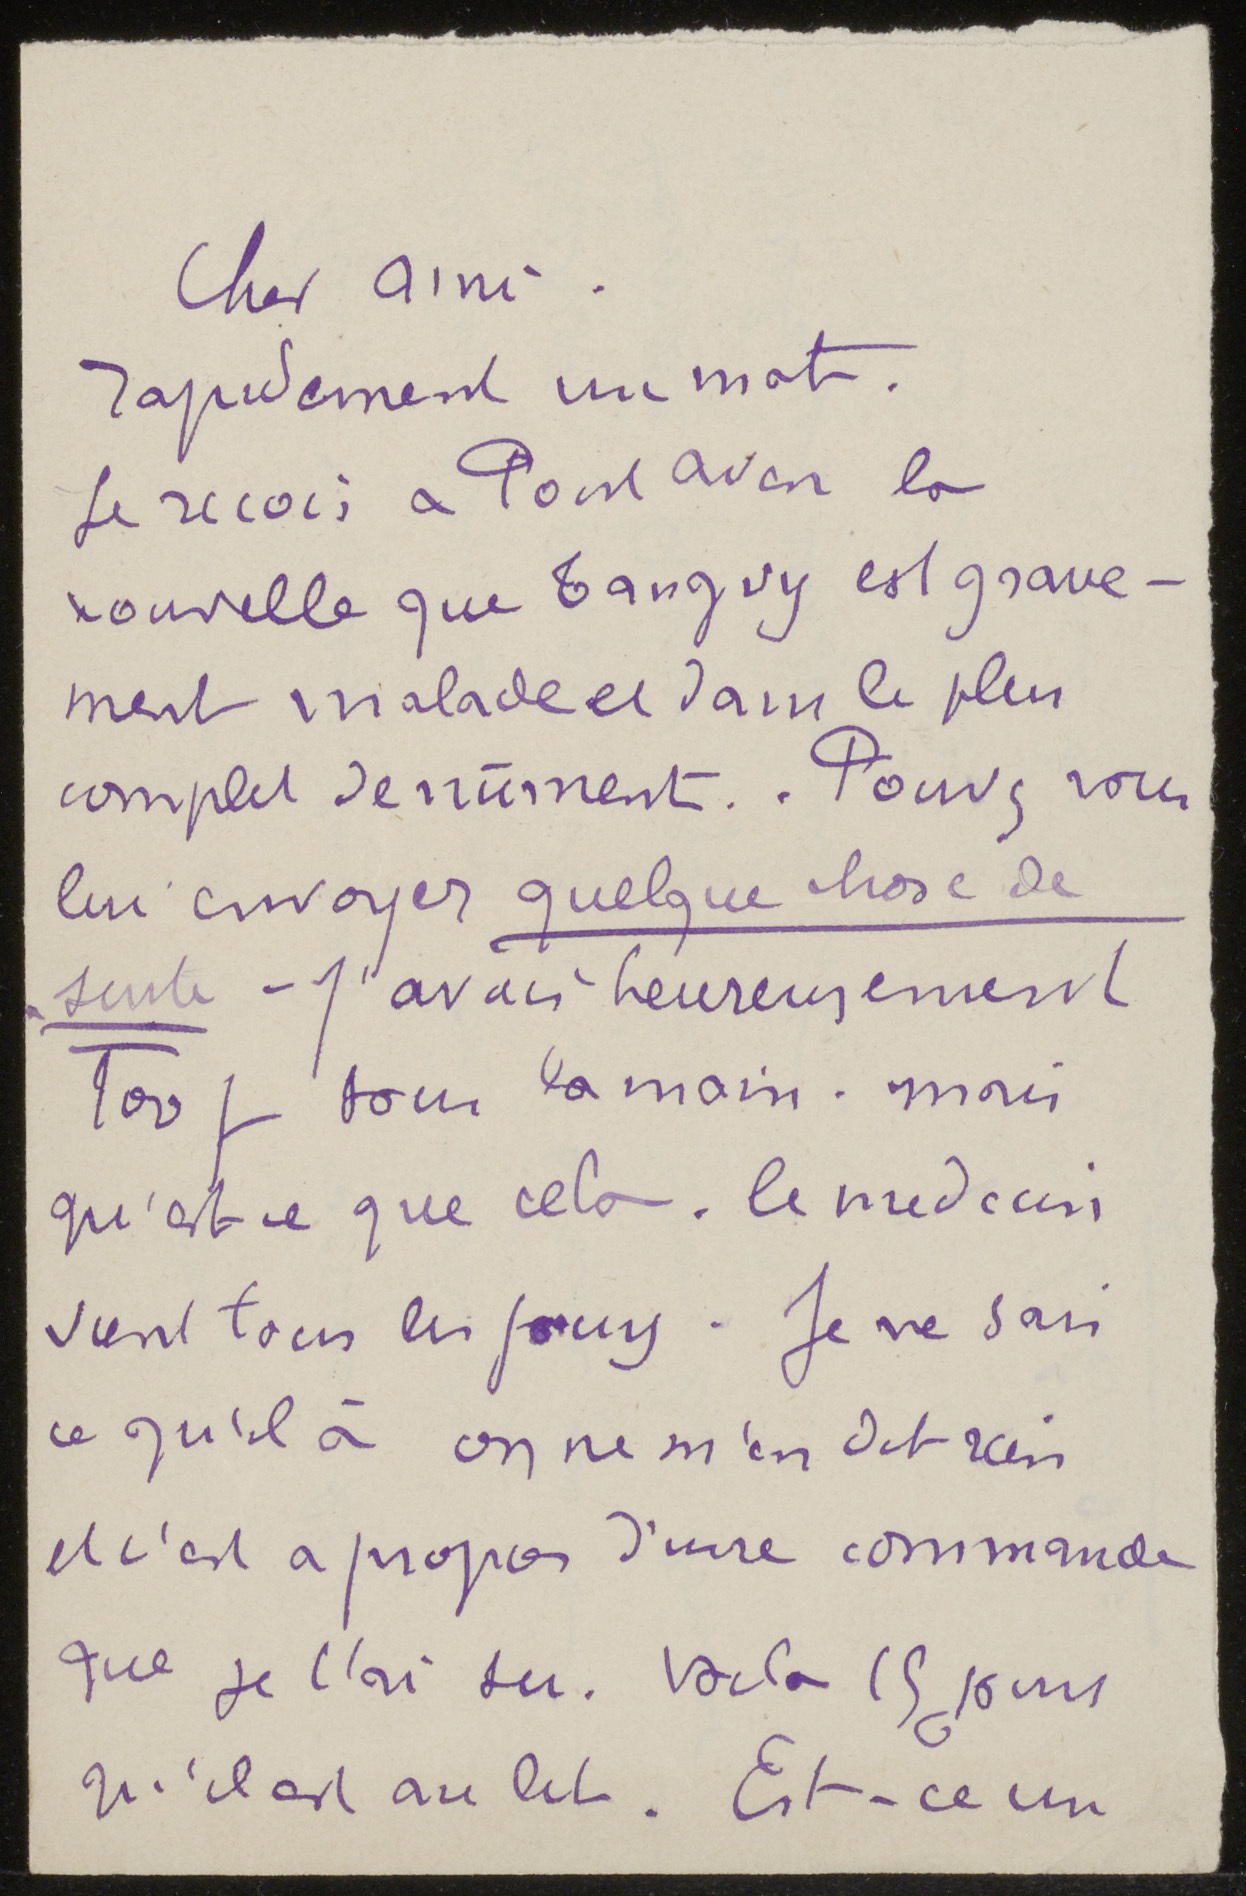 Cher ami.
rapidement un mot.
Je recois a Pont aven la
nouvelle que Tanguy est grave-
ment malade et dans le plus
complet denument.. Pouvez vous
lui envoyer quelque chose de
suite - J'avais heureusement
100 f sous la main. mais
qu'est ce que cela. le medecin
vient tous les jours. Je ne sais
ce qu'il à on ne m'en dit rien
et c'est a propos d'une commande
que je l'ai su. Voila 15 jours
qu'il est au lit. Est-ce un